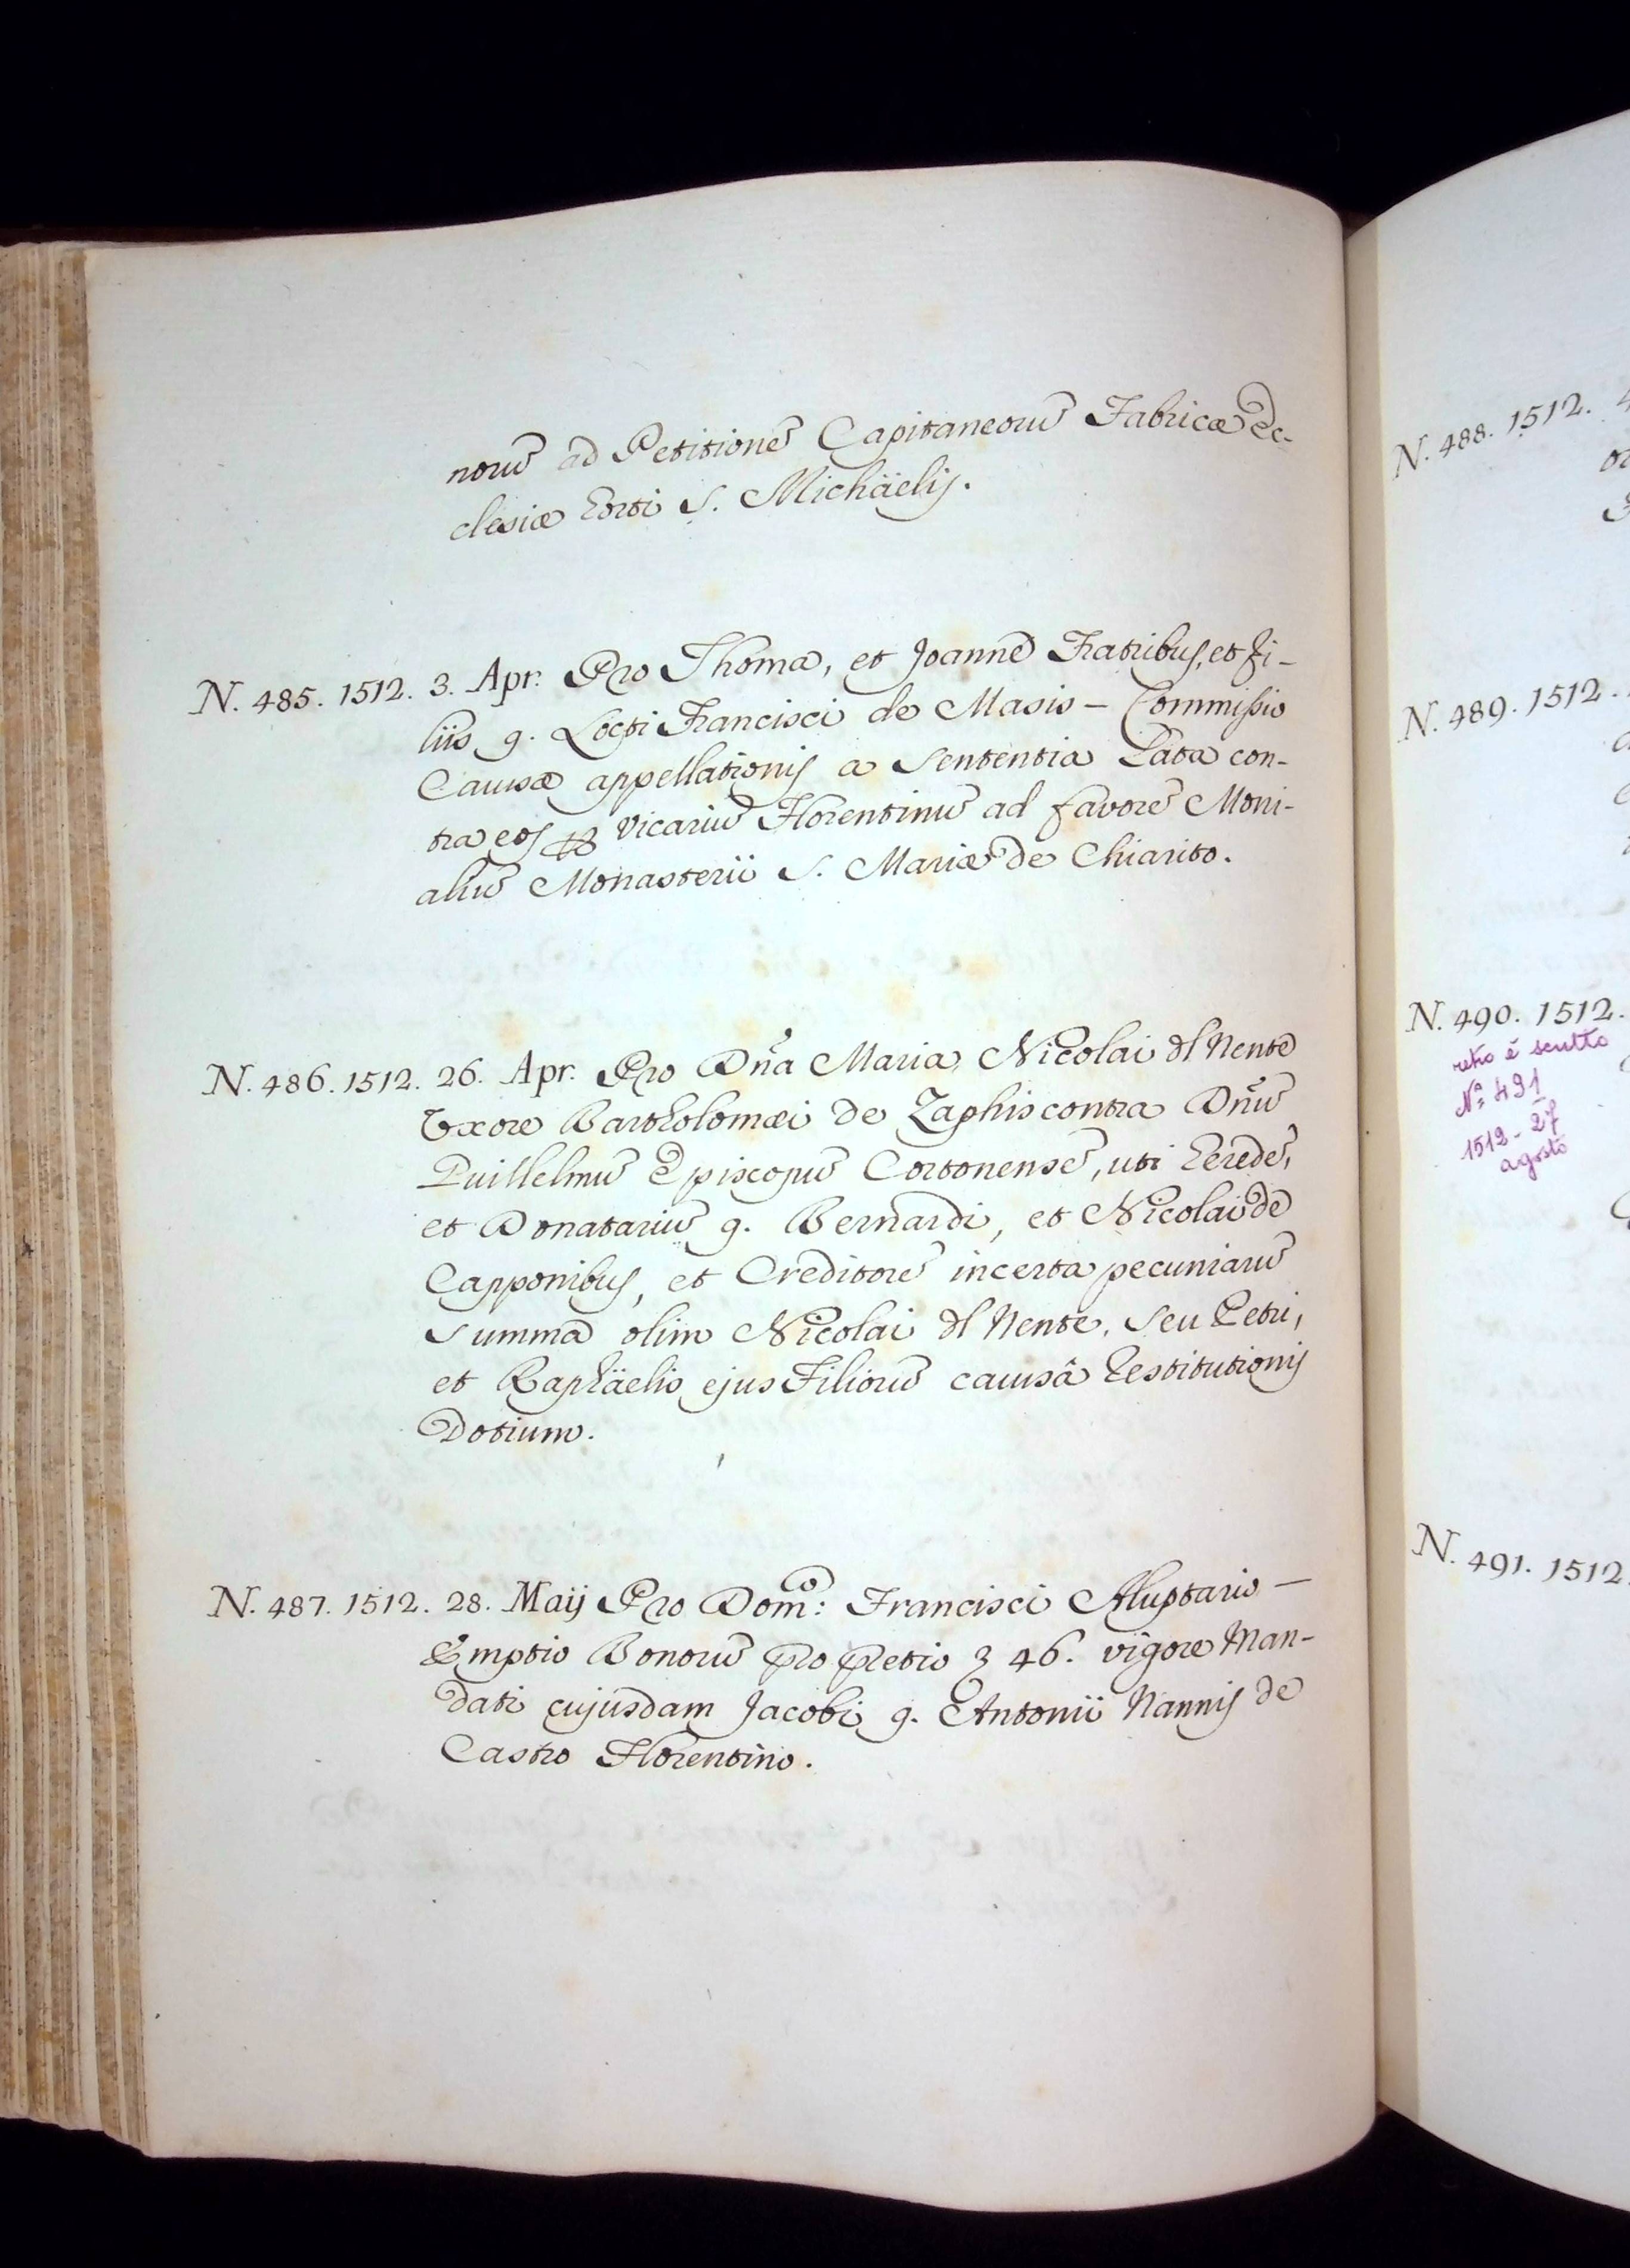 norũ ad Petitionẽ Capitaneorũ Fabricæ Ec-
clesiæ Horti S. Michäelis.
N. 485. 1512. 3. Apr. Pro Thoma, et Joanne Fratribus, et Fi-
liis q. Francisci de Masis – Commissio
Causæ appellationis a Sententia Lata con-
tra eos ꝑ Vicariũ Florentinũ ad favorẽ Moni-
aliũ Monasterii S. Mariæ de Chiarito.
N. 486. 1512. 26. Apr. Pro Dña Maria Nicolai dl Nente
Uxore Bartholomæi de Zaphis contra Dñũ
Guillelmũ Episcopũ Cortonensẽ, uti Heredẽ,
et Donatariũ q. Bernardi, et Nicolai de
Capponibus, et Creditorẽ incerta pecuniarũ
Summa olim Nicolai dl Nente, Seu Petri,
et Raphäelis ejus Filiorũ causâ Restitutionis
Dotium.
N. 487. 1512. 28. Maij Pro Dom:co Francisci Aluptario –
Emptio Bonorũ pro pretio 46. vigore Man-
dati cujusdam Jacobi q. Antonii Nannis de
Castro Florentino.
N. 488. 1512.
N. 489. 1512.
N. 490. 1512.
retro è scritto
Nº 491
1512 - 27
agosto
N. 491. 1512